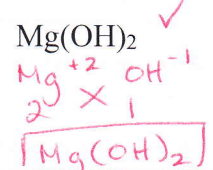 Mg(OH)₂
Mg⁺² OH⁻¹
2 × 1
Mg(OH)₂